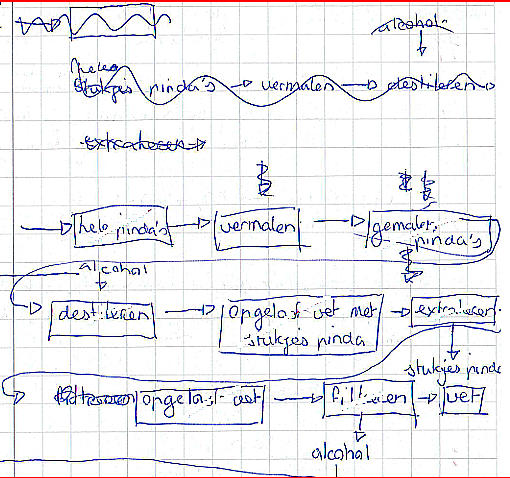 alcohol
hele
stukjes pinda's → vermalen → destileren →
extraheren →
→ hele pinda's → vermalen → gemalen pinda's
alcohol
→ destileren → opgelost vet met stukjes pinda → extraheren
stukjes pinda
opgelost vet → filtreren → vet
alcohol